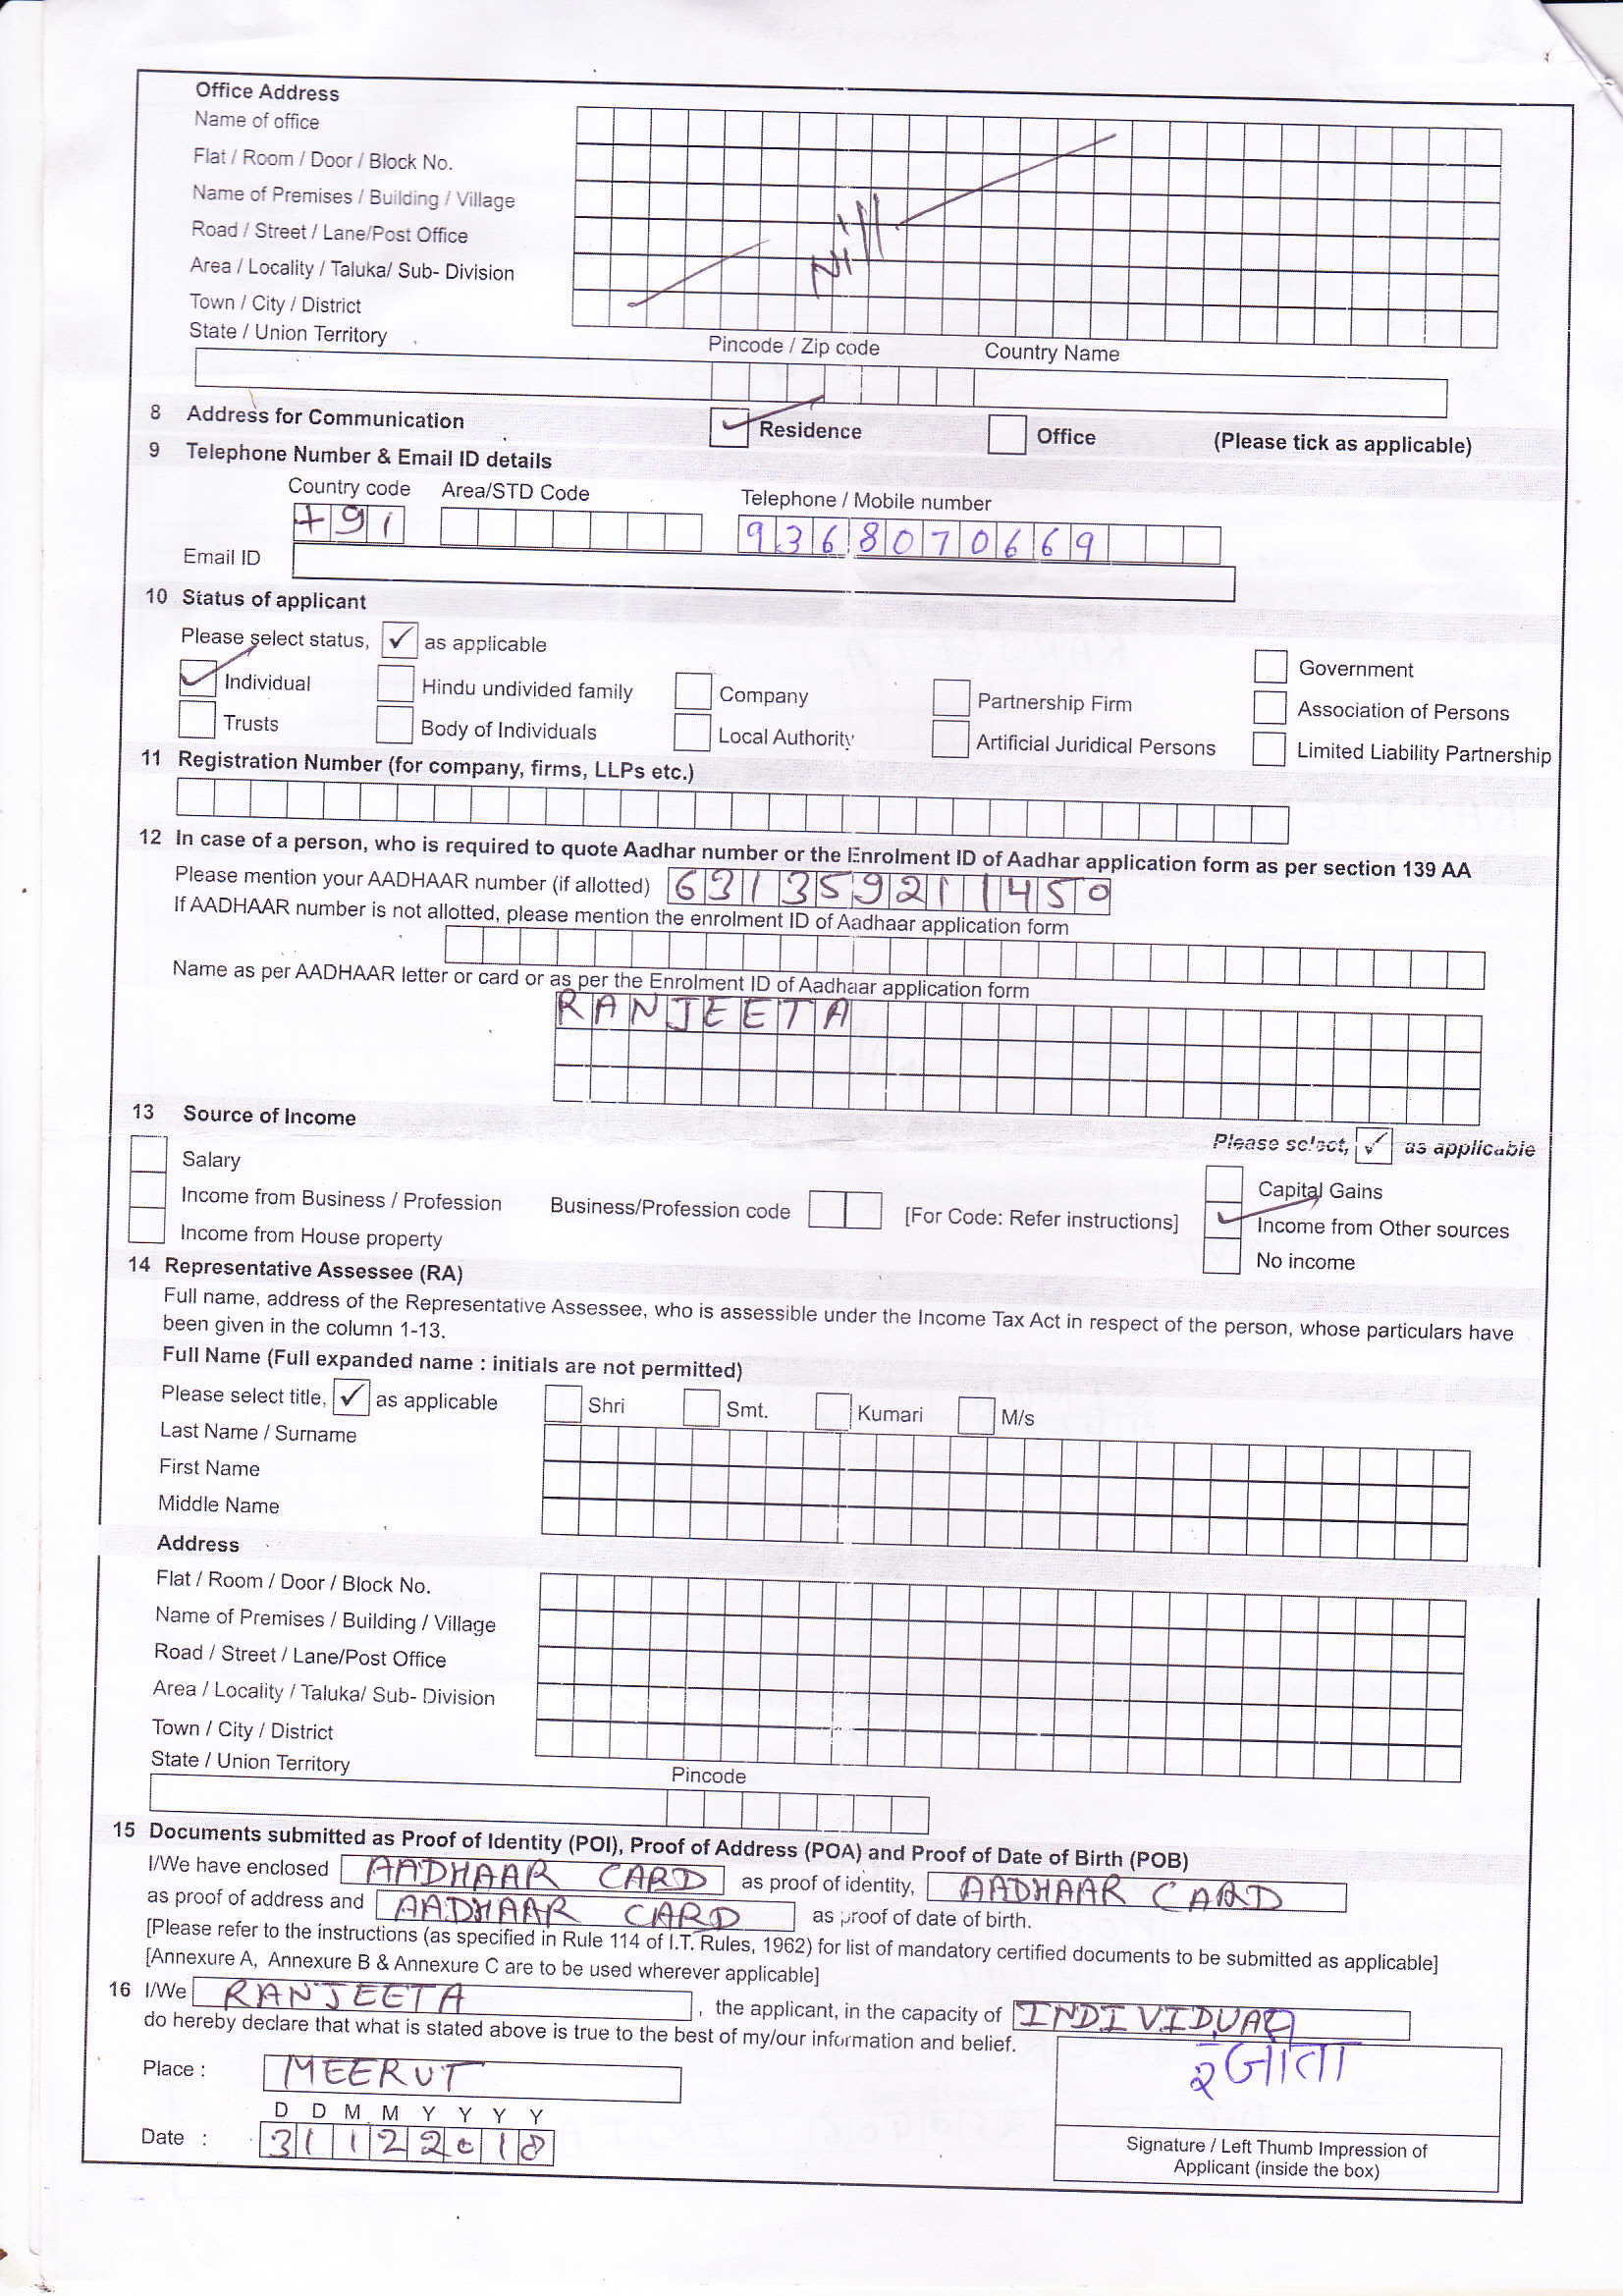 Office Address
Name of office
Flat / Room / Door / Block No.
Name of Premises / Building / Village
Road / Street / Lane/Post Office
Area / Locality / Taluka/ Sub- Division
Town / City / District
Nill
State / Union Territory Pincode / Zip code Country Name
8 Address for Communication ✓ Residence Office (Please tick as applicable)
9 Telephone Number & Email ID details
Country code Area/STD Code Telephone / Mobile number
+91 9368070669
Email ID
10 Status of applicant
Please select status, ✓ as applicable
✓ Individual Hindu undivided family Company Partnership Firm Government
Trusts Body of Individuals Local Authority Artificial Juridical Persons Association of Persons
Limited Liability Partnership
11 Registration Number (for company, firms, LLPs etc.)
12 In case of a person, who is required to quote Aadhar number or the Enrolment ID of Aadhar application form as per section 139 AA
Please mention your AADHAAR number (if allotted) 631359211450
If AADHAAR number is not allotted, please mention the enrolment ID of Aadhaar application form
Name as per AADHAAR letter or card or as per the Enrolment ID of Aadhaar application form
RANJEETA
13 Source of Income Please select, ✓ as applicable
Salary Capital Gains
Income from Business / Profession Business/Profession code [For Code: Refer instructions] ✓ Income from Other sources
Income from House property No income
14 Representative Assessee (RA)
Full name, address of the Representative Assessee, who is assessible under the Income Tax Act in respect of the person, whose particulars have
been given in the column 1-13.
Full Name (Full expanded name : initials are not permitted)
Please select title, ✓ as applicable Shri Smt. Kumari M/s
Last Name / Surname
First Name
Middle Name
Address
Flat / Room / Door / Block No.
Name of Premises / Building / Village
Road / Street / Lane/Post Office
Area / Locality / Taluka/ Sub- Division
Town / City / District
State / Union Territory Pincode
15 Documents submitted as Proof of Identity (POI), Proof of Address (POA) and Proof of Date of Birth (POB)
I/We have enclosed AADHAAR CARD as proof of identity, AADHAAR CARD
as proof of address and AADHAAR CARD as proof of date of birth.
[Please refer to the instructions (as specified in Rule 114 of I.T. Rules, 1962) for list of mandatory certified documents to be submitted as applicable]
[Annexure A, Annexure B & Annexure C are to be used wherever applicable]
16 I/We RANJEETA , the applicant, in the capacity of INDIVIDUAL
do hereby declare that what is stated above is true to the best of my/our information and belief.
Place : MEERUT
D D M M Y Y Y Y
Date : 31122018
Signature / Left Thumb Impression of
Applicant (inside the box)